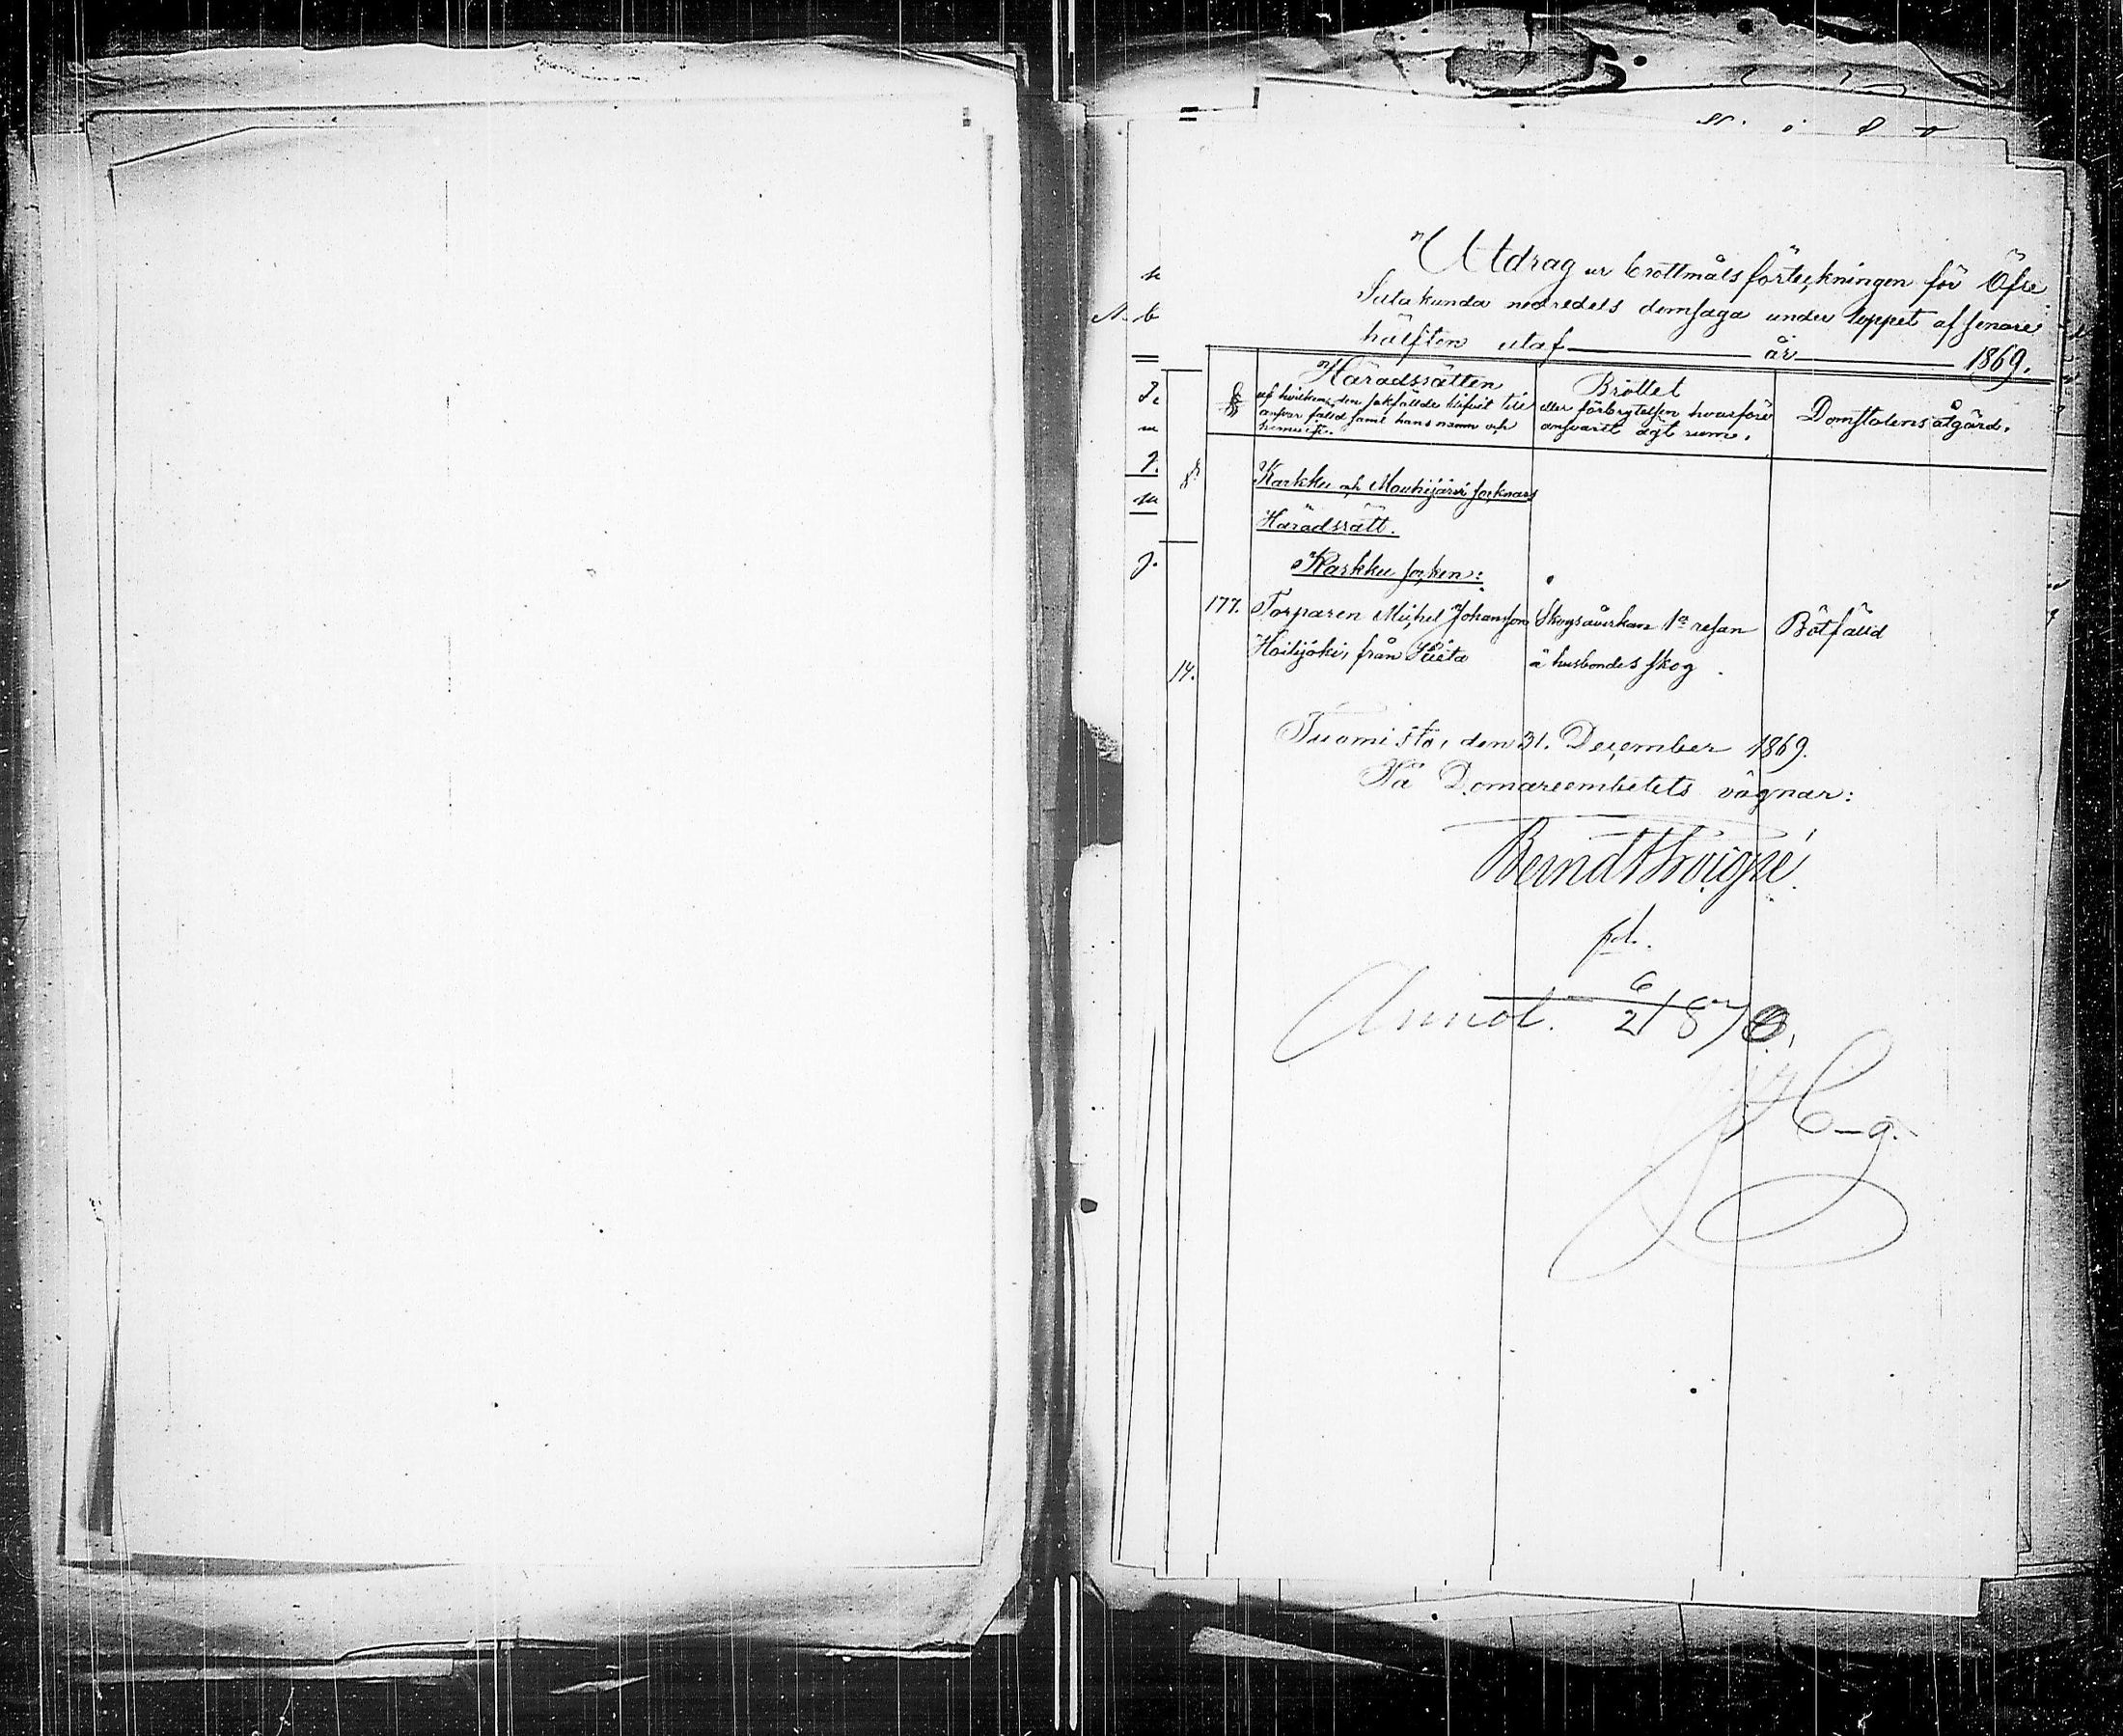 Utdrag ur brottmålsförteckningen för Öfre
Satakunda nedredels domsaga under loppet af senare
hälften utaf år 1869.
§§
Häradsrätten
af hvilken den sakfällde blifvit till
ansvar fälld samt hans namn och
hemvist.
Brottet
eller förbrytelsen hvarföre
ansvaret ägt rum.
Domstolens åtgärd.
Karkku och Mouhijärvi socknars
Häradsrätt.
Karkku socken:
177. Torparen Michel Johansson
från
Skogsåverkan 1a resan
å husbondes skog
Botfälld
14.
Tuomisto, den 31. December 1869.
På Domareembetets vägnar:
Annot. 6/2 1870.